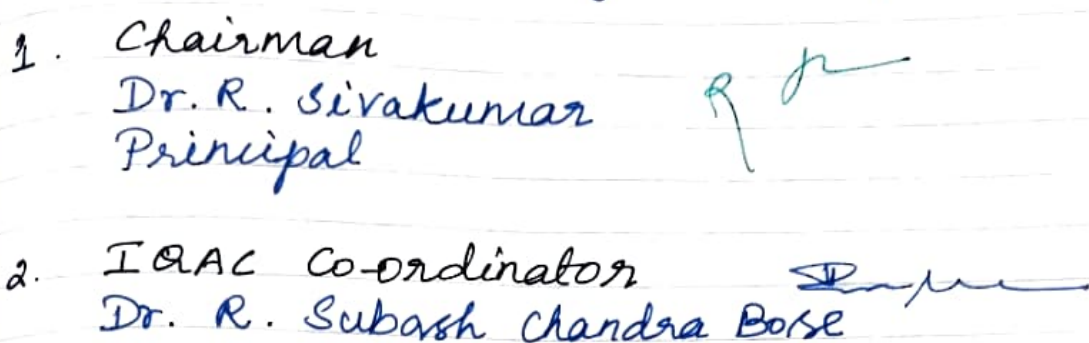 1. Chairman
Dr. R. Sivakumar
Principal
2. IQAC Co-ordinator
Dr. R. Subash Chandra Bose